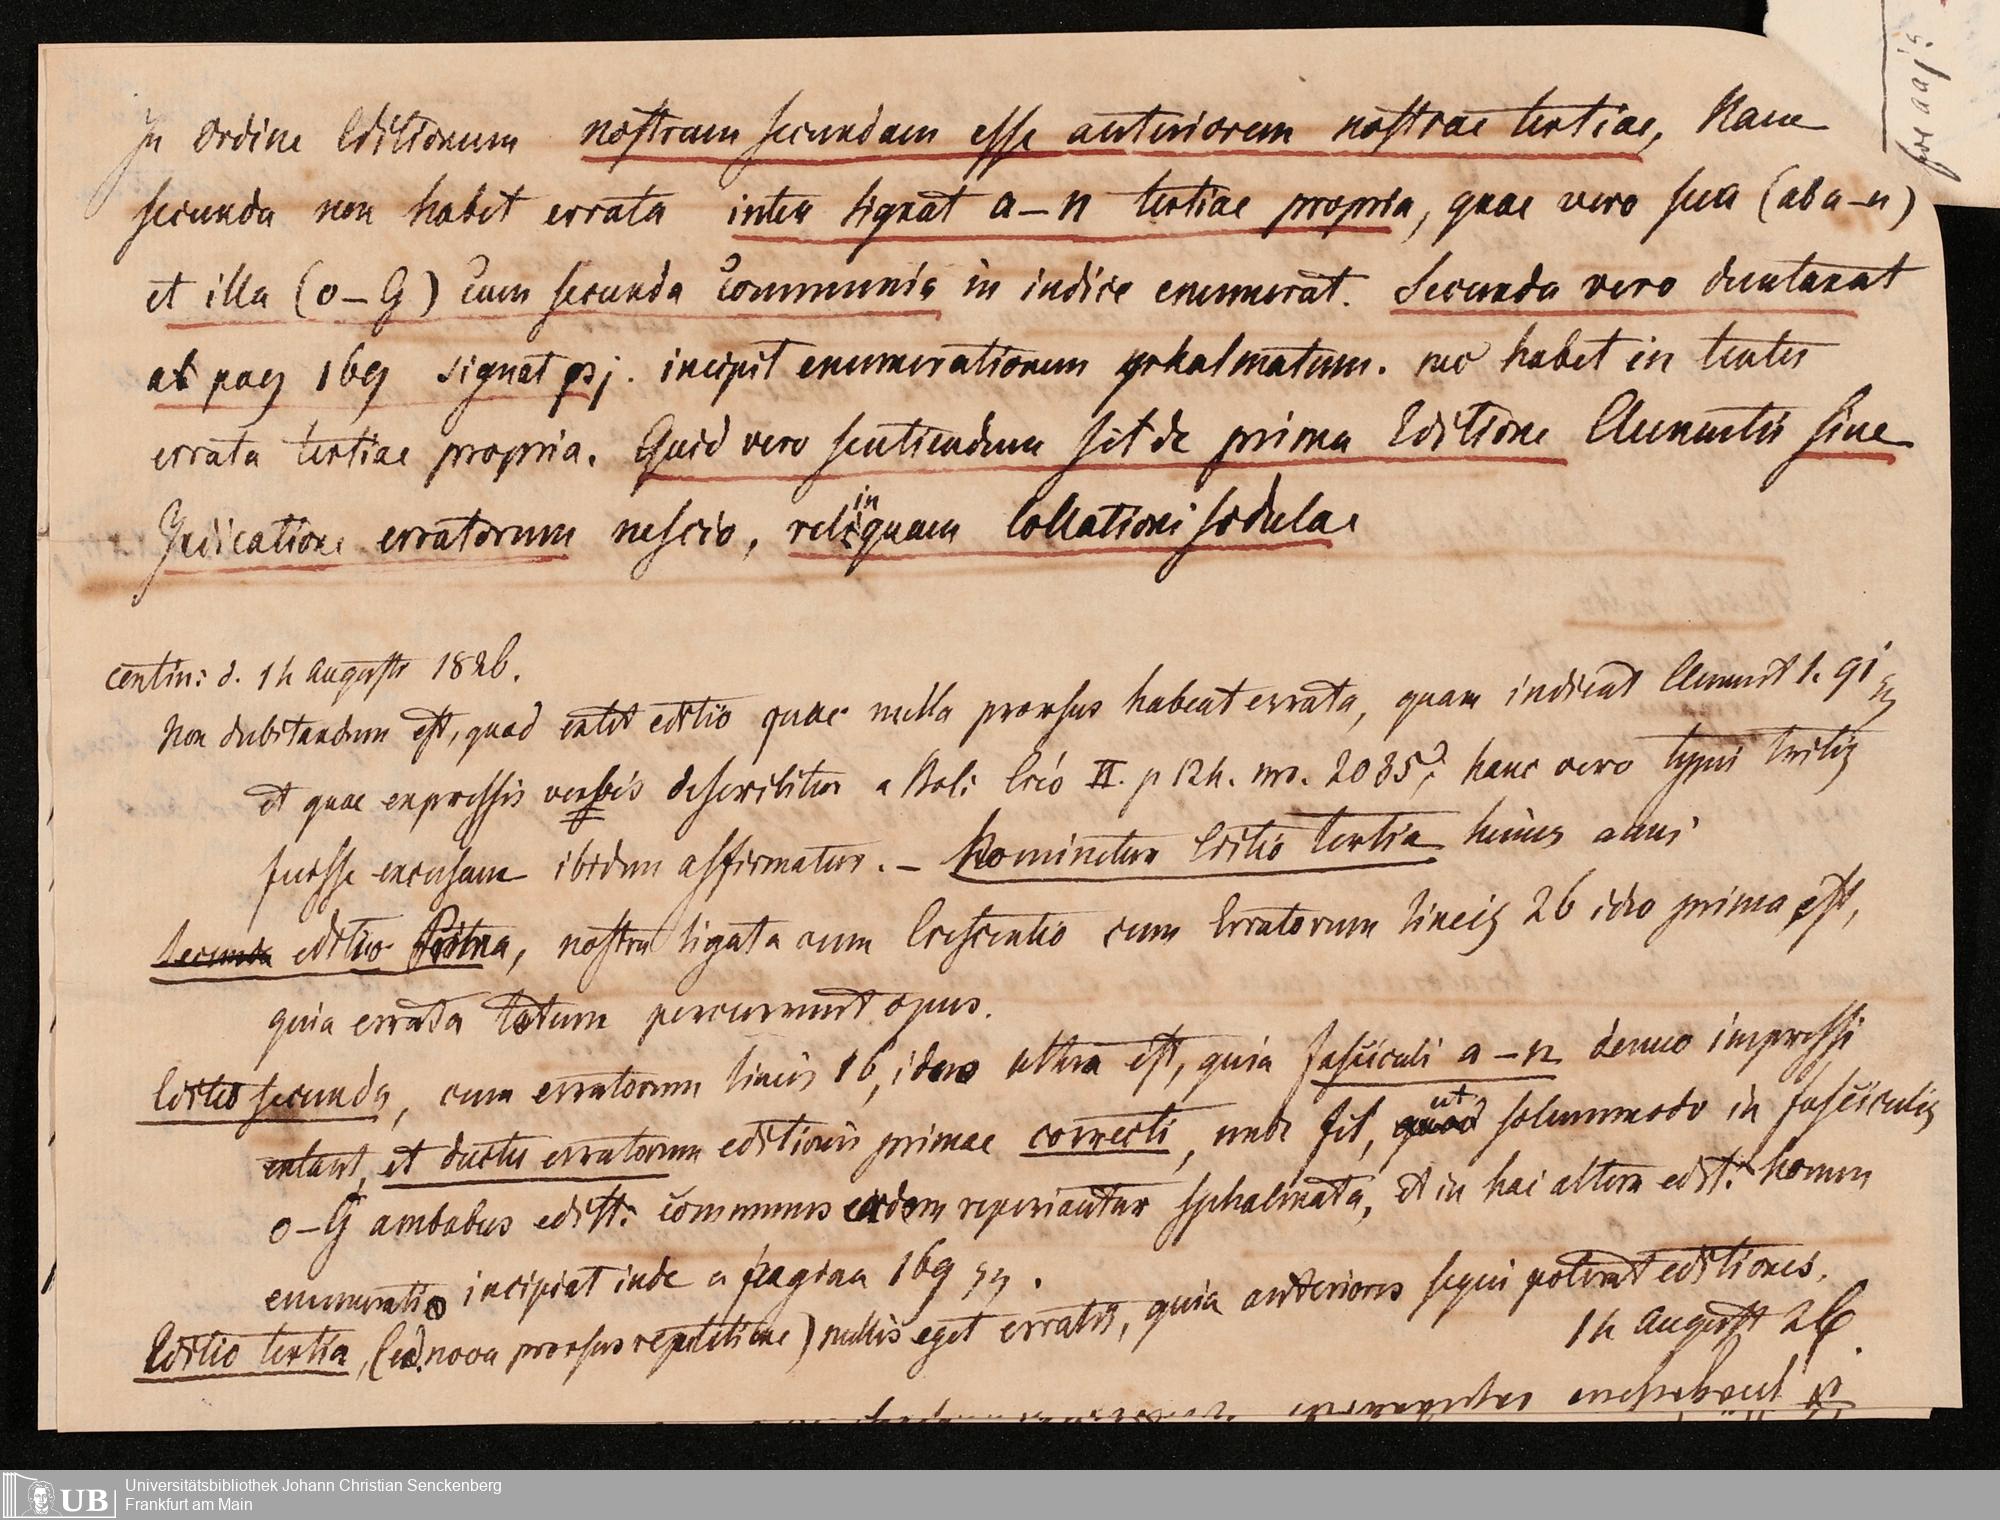 In Ordine Editionum nostram secundam esse anteriorem nostrae tertiae, Nam
secunda non habet errata inter signat a–n tertiae propria, quae vero sua (ab a–n)
et illa (o–G) cum secunda communia in indice enumerat. Secunda vero duntaxat
ab pag 169 signat pj. incipit enumerationem sphalmatum. nec habet in textu
errata tertiae propria. Quid vero sentiendum sit de prima Editione Clementis sine
Indicatione erratorum nescio, relinquam Collationi sedulae
contin: d. 14 Augusti 1826.
Non dubitandum est, quod extet editio quae nulla prorsus habeat errata, quam indicat Clement t. 91
et quae expressis verbis describitur a Bibl: Crev II. p 124. no. 2085; hanc vero typis tertiis
fuisse excusam ibidem affirmatur. – Nominetur Editio tertia huius anni
editio Prima, nostra ligata cum Crescentio cum Erratorum lineis 26 ideo prima est,
quia errata totum percurrunt opus.
Editio secunda, cum erratorum lineis 16, ideo altera est, quia fasciculi a–n denuo impressi
extant, et ductu erratorum editionis primae correcti, unde fit, ut solummodo in fasciculis
o–G ambabus editt: communibus eadem reperiantur sphalmata, et in hac altera edit: horum
enumeratio incipiat inde a pagina 169 sq.
Editio tertia, (ed. nova prorsus repetitione) nullis eget erratis, quia anteriores sequi poterat editiones.
14 August 26.